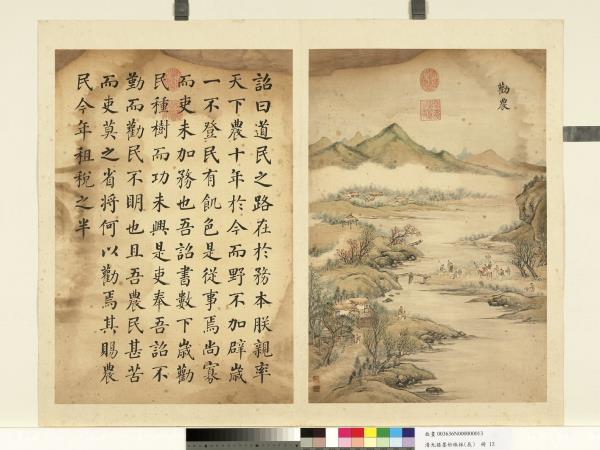 勸農
詔曰道民之路在於務本朕親率
天下農十年於今而野不加辟歲
一不登民有飢色是從事焉尚寡
而吏未加務也吾詔書數下歲勸
民種樹而功未興是吏奉吾詔不
勤而勸民不明也且吾農民甚苦
而吏莫之省將何以勸焉其賜農
民今年租稅之半
故畫 003656N000000013
墨妙珠林 冊 13